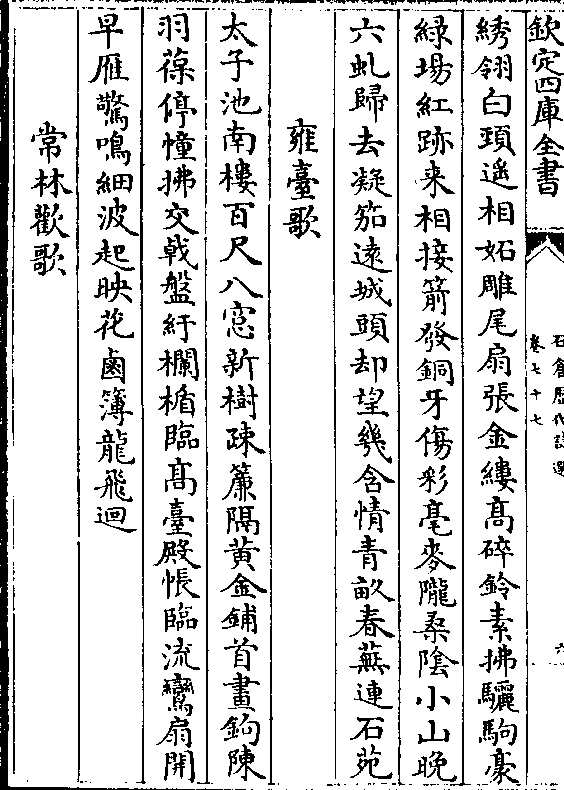 欽定四庫全書
石倉歷代詩選
卷七十七
六
綉翎白頸遙相妬雕尾扇張金縷高碎鈴素拂驪駒豪
緑塲紅跡来相接箭發銅牙傷彩毫麥隴桑陰小山晚
六虬歸去凝笳遠城頭却望幾含情青畝春蕪連石苑
雍臺歌
太子池南樓百尺八窓新樹疎簾隔黄金鋪首畫鉤陳
羽葆停幢拂交戟盤紆欄楯臨髙臺殿帳臨流鸞扇開
早雁驚鳴細波起映花鹵簿龍飛迴
常林歡歌